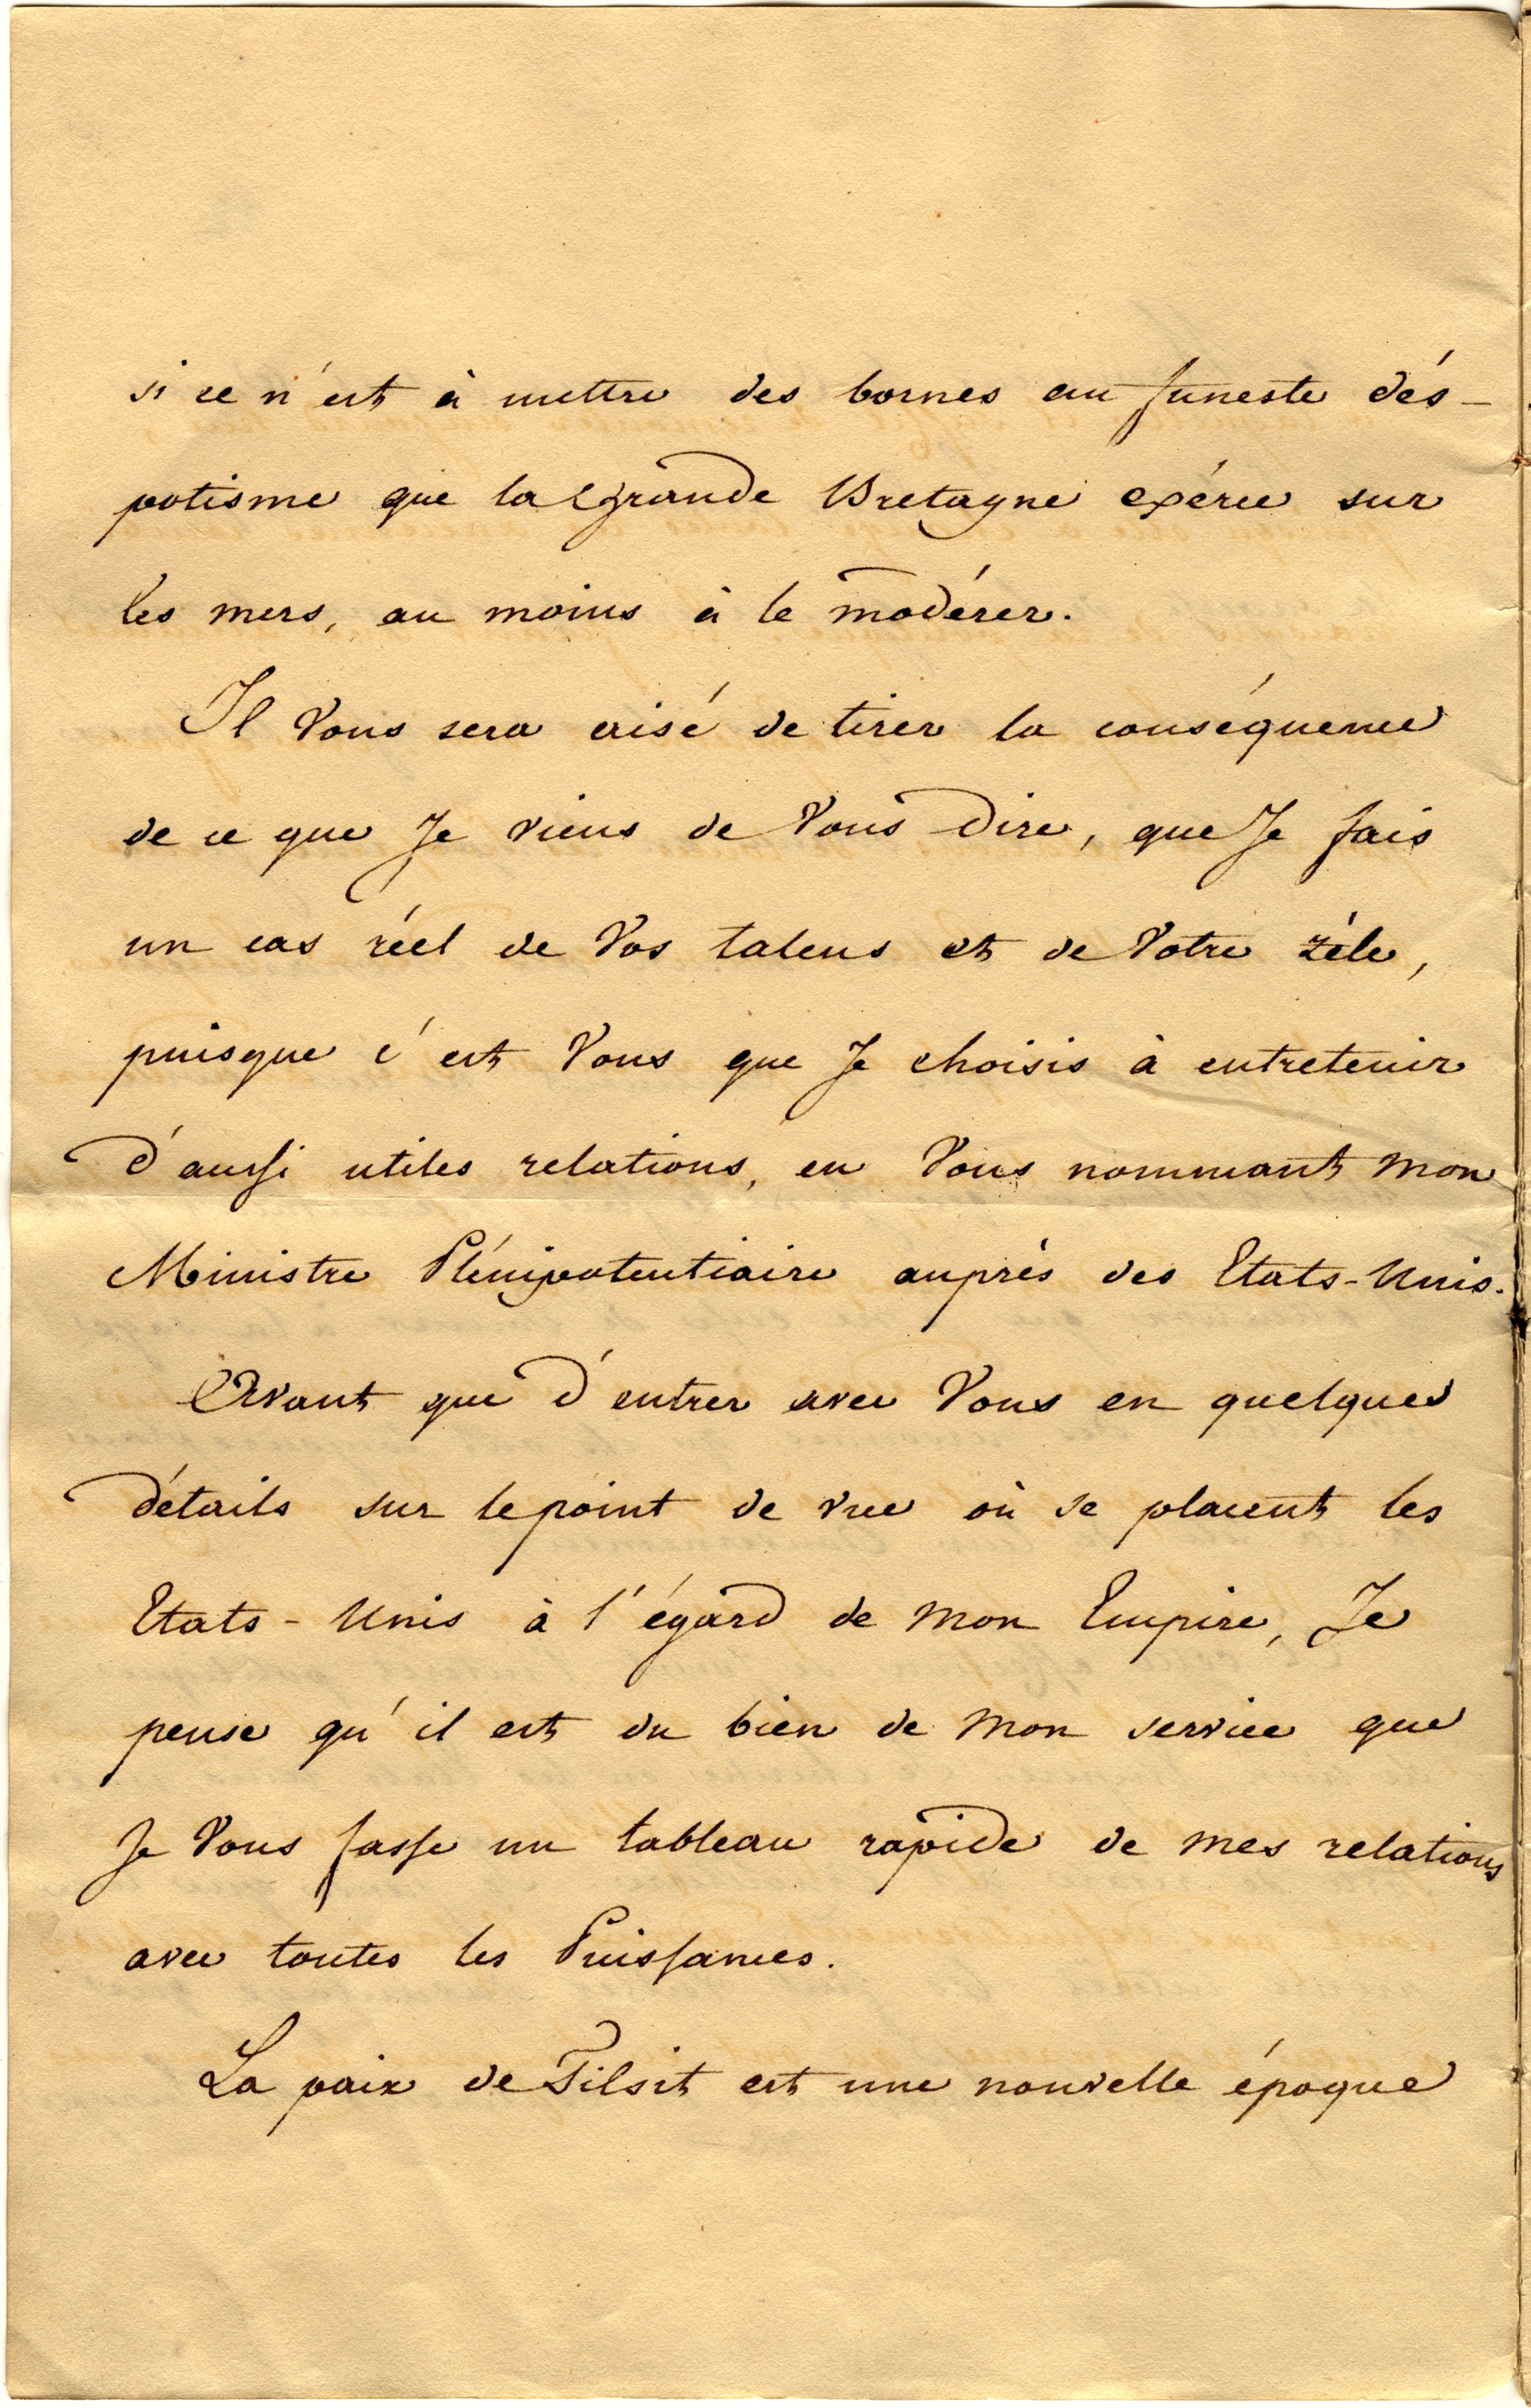 si ce n'est à mettre des bornes au funeste dés-
potisme que la Grande Bretagne exérce sur
les mers, au moins à le modérer.
Il Vous sera aisé de tirer la conséquence
de ce que Je viens de Vous dire, que Je fais
un cas réel de Vos talens et de Votre zèle,
puisque c'est Vous que Je choisis à entretenir
d'aussi utiles relations, en Vous nommant Mon
Ministre Plénipotentiaire auprès des Etats-Unis.
Avant que d'entrer avec Vous en quelques
détails sur le point de vue où se placent les
Etats-Unis à l'égard de Mon Empire, Je
pense qu'il est du bien de Mon service que
Je Vous fasse un tableau rapide de Mes relations
avec toutes les Puissances.
La paix de Tilsit est une nouvelle époque